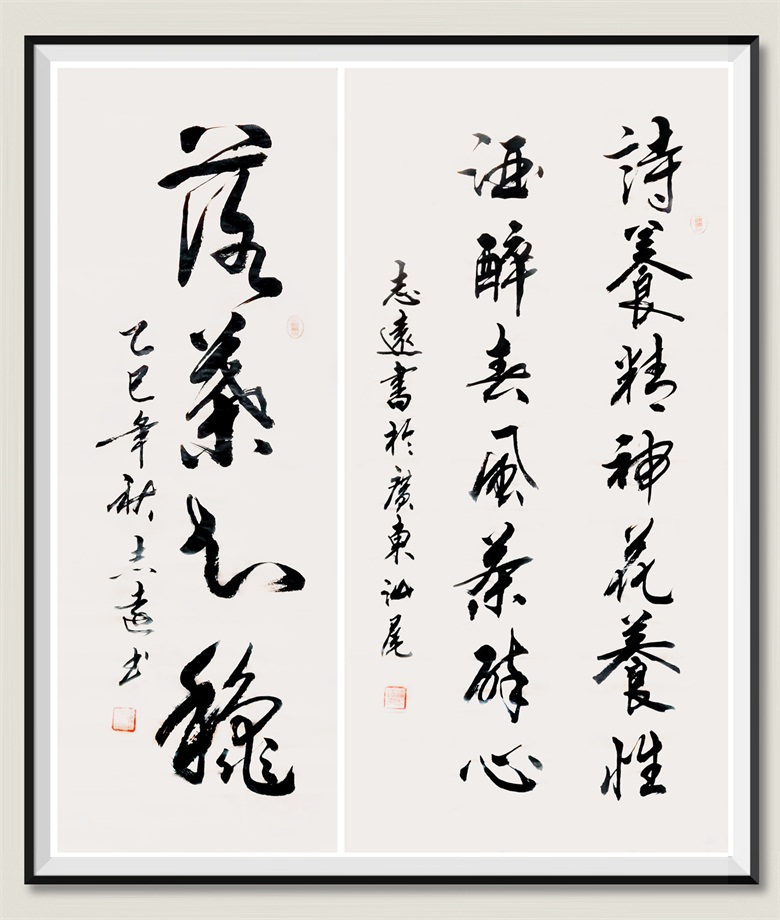 詩養精神花養性
酒醉春風茶醉心
志遠書於廣東汕尾
落葉知穐
乙巳年秋志遠书